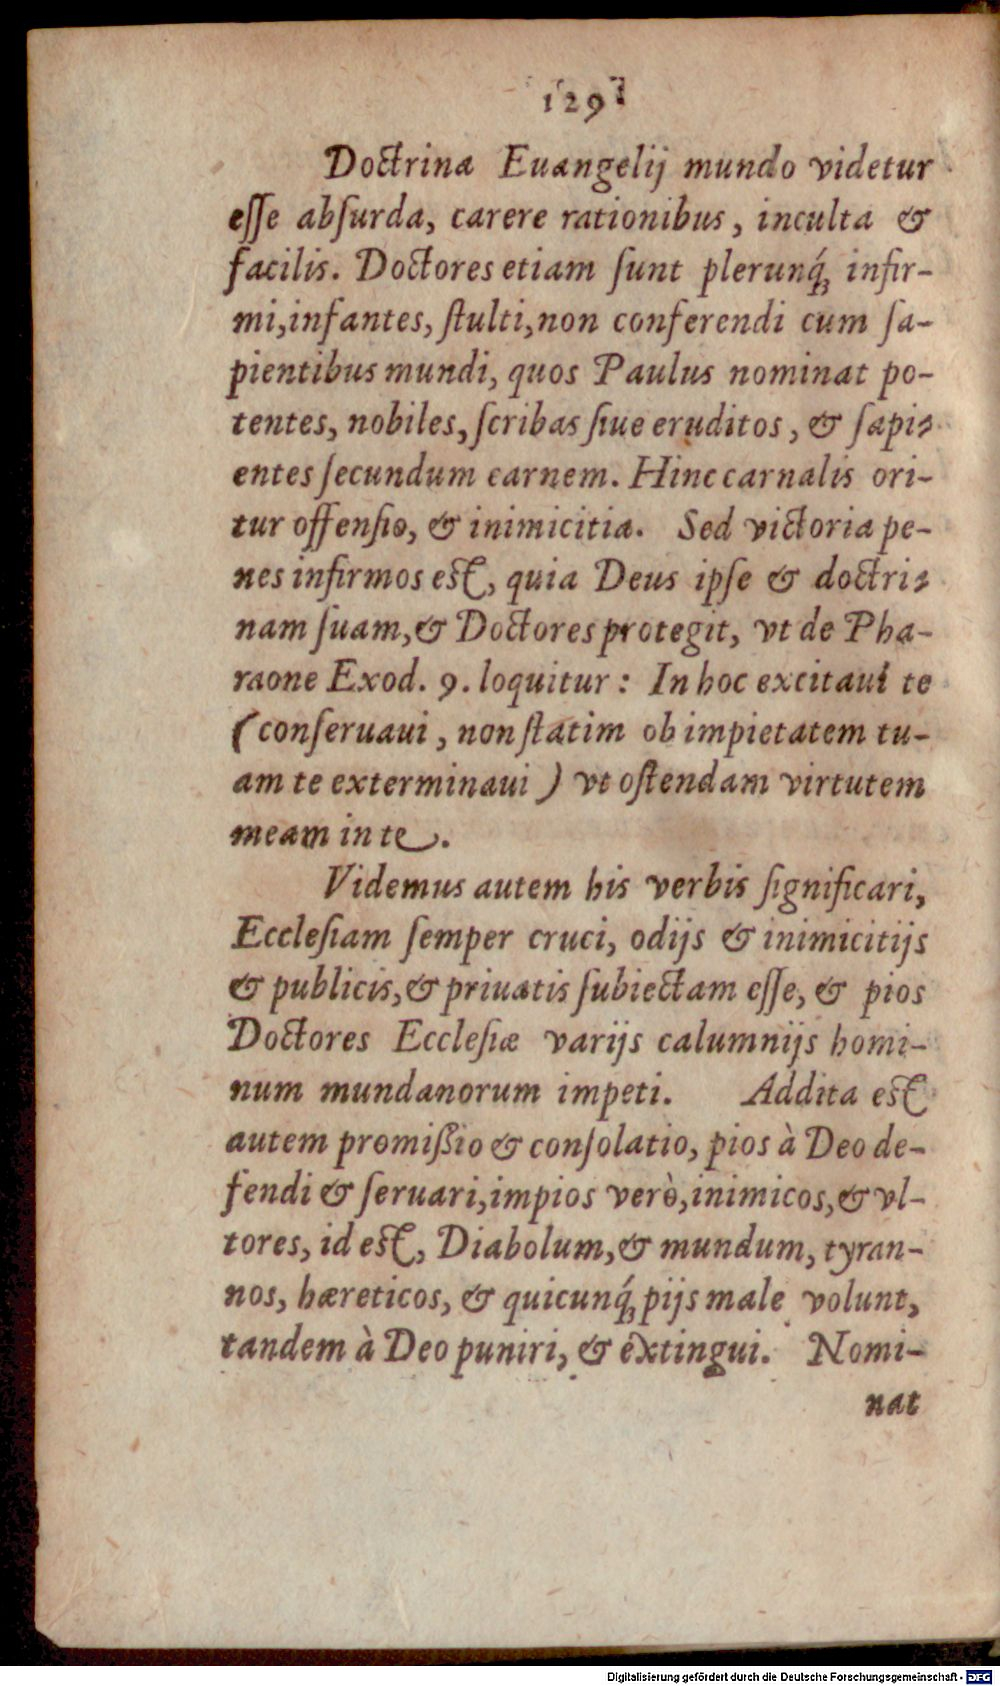 129
Doctrina Euangelij mundo videtur
eſſe abſurda, carere rationibus, inculta &
facilis. Doctores etiam ſunt plerunq́; infir-
mi,infantes, ſtulti,non conferendi cum ſa-
pientibus mundi, quos Paulus nominat po-
tentes, nobiles, ſcribas ſiue eruditos, & ſapi-
entes ſecundum carnem. Hinc carnalis ori-
tur offenſio, & inimicitia. Sed victoria pe-
nes infirmos est, quia Deus ipſe & doctri-
nam ſuam,& Doctores protegit, vt de Pha-
raone Exod. 9. loquitur: In hoc excitaui te
(conſeruaui, non ſtatim ob impietatem tu-
am te exterminaui) vt oſtendam virtutem
meam in te.
Videmus autem his verbis ſignificari,
Eccleſiam ſemper cruci, odijs & inimicitijs
& publicis,& priuatis ſubiectam eſſe, & pios
Doctores Eccleſiæ varijs calumnijs homi-
num mundanorum impeti. Addita est
autem promiſſio & conſolatio, pios à Deo de-
fendi & ſeruari,impios verò,inimicos,& vl-
tores, id est, Diabolum,& mundum, tyran-
nos, hæreticos, & quicunq́; pijs male volunt,
tandem à Deo puniri, & extingui. Nomi-
nat
Digitalisierung gefördert durch die Deutsche Forschungsgemeinschaft - DFG